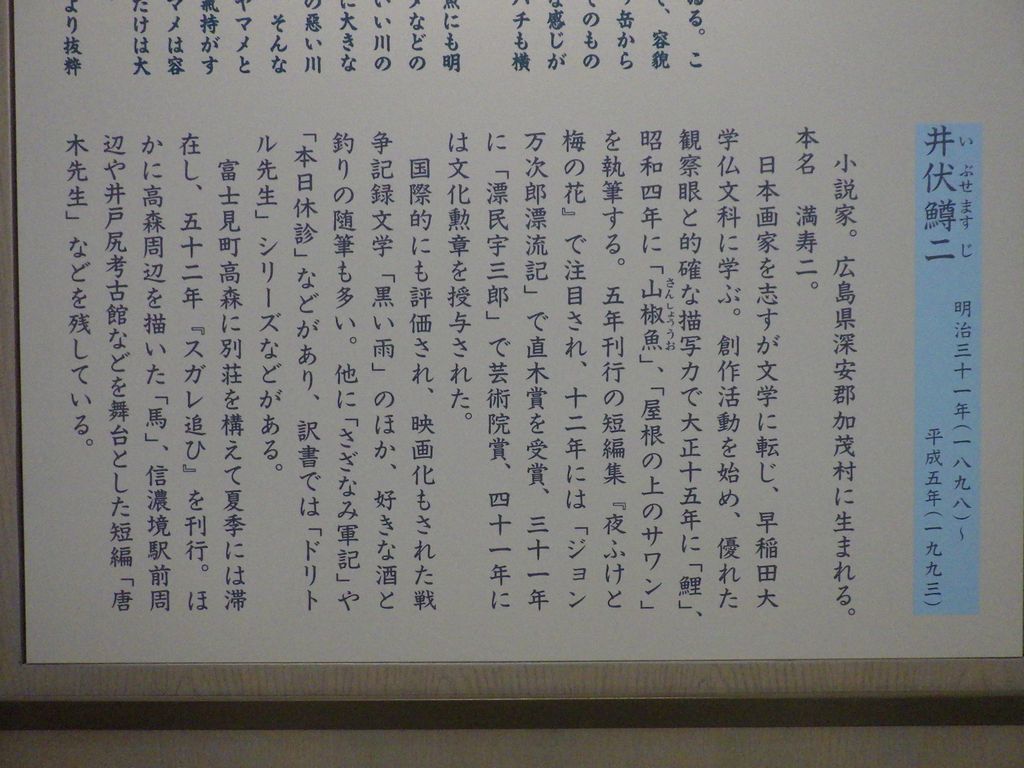 ゐる。こ
、容貌
岳から
てのもの
な感じが
バチも横
魚にも明
メなどの
いい川の
に大きな
の惡い川
そんな
ヤマメと
氣持がす
マメは容
たけは大
より抜粋
いぶせますじ
井伏鱒二 明治三十一年(一八九八)～
平成五年(一九九三)
小説家。広島県深安郡加茂村に生まれる。
本名 満寿二。
日本画家を志すが文学に転じ、早稲田大
学仏文科に学ぶ。創作活動を始め、優れた
観察眼と的確な描写力で大正十五年に「鯉」、
さんしょううお
昭和四年に「山椒魚」、「屋根の上のサワン」
を執筆する。五年刊行の短編集『夜ふけと
梅の花』で注目され、十二年には「ジョン
万次郎漂流記」で直木賞を受賞、三十一年
に「漂民宇三郎」で芸術院賞、四十一年に
は文化勲章を授与された。
国際的にも評価され、映画化もされた戦
争記録文学「黒い雨」のほか、好きな酒と
釣りの随筆も多い。他に「さざなみ軍記」や
「本日休診」などがあり、訳書では「ドリト
ル先生」シリーズなどがある。
富士見町高森に別荘を構えて夏季には滞
在し、五十二年『スガレ追ひ』を刊行。ほ
かに高森周辺を描いた「馬」、信濃境駅前周
辺や井戸尻考古館などを舞台とした短編「唐
木先生」などを残している。